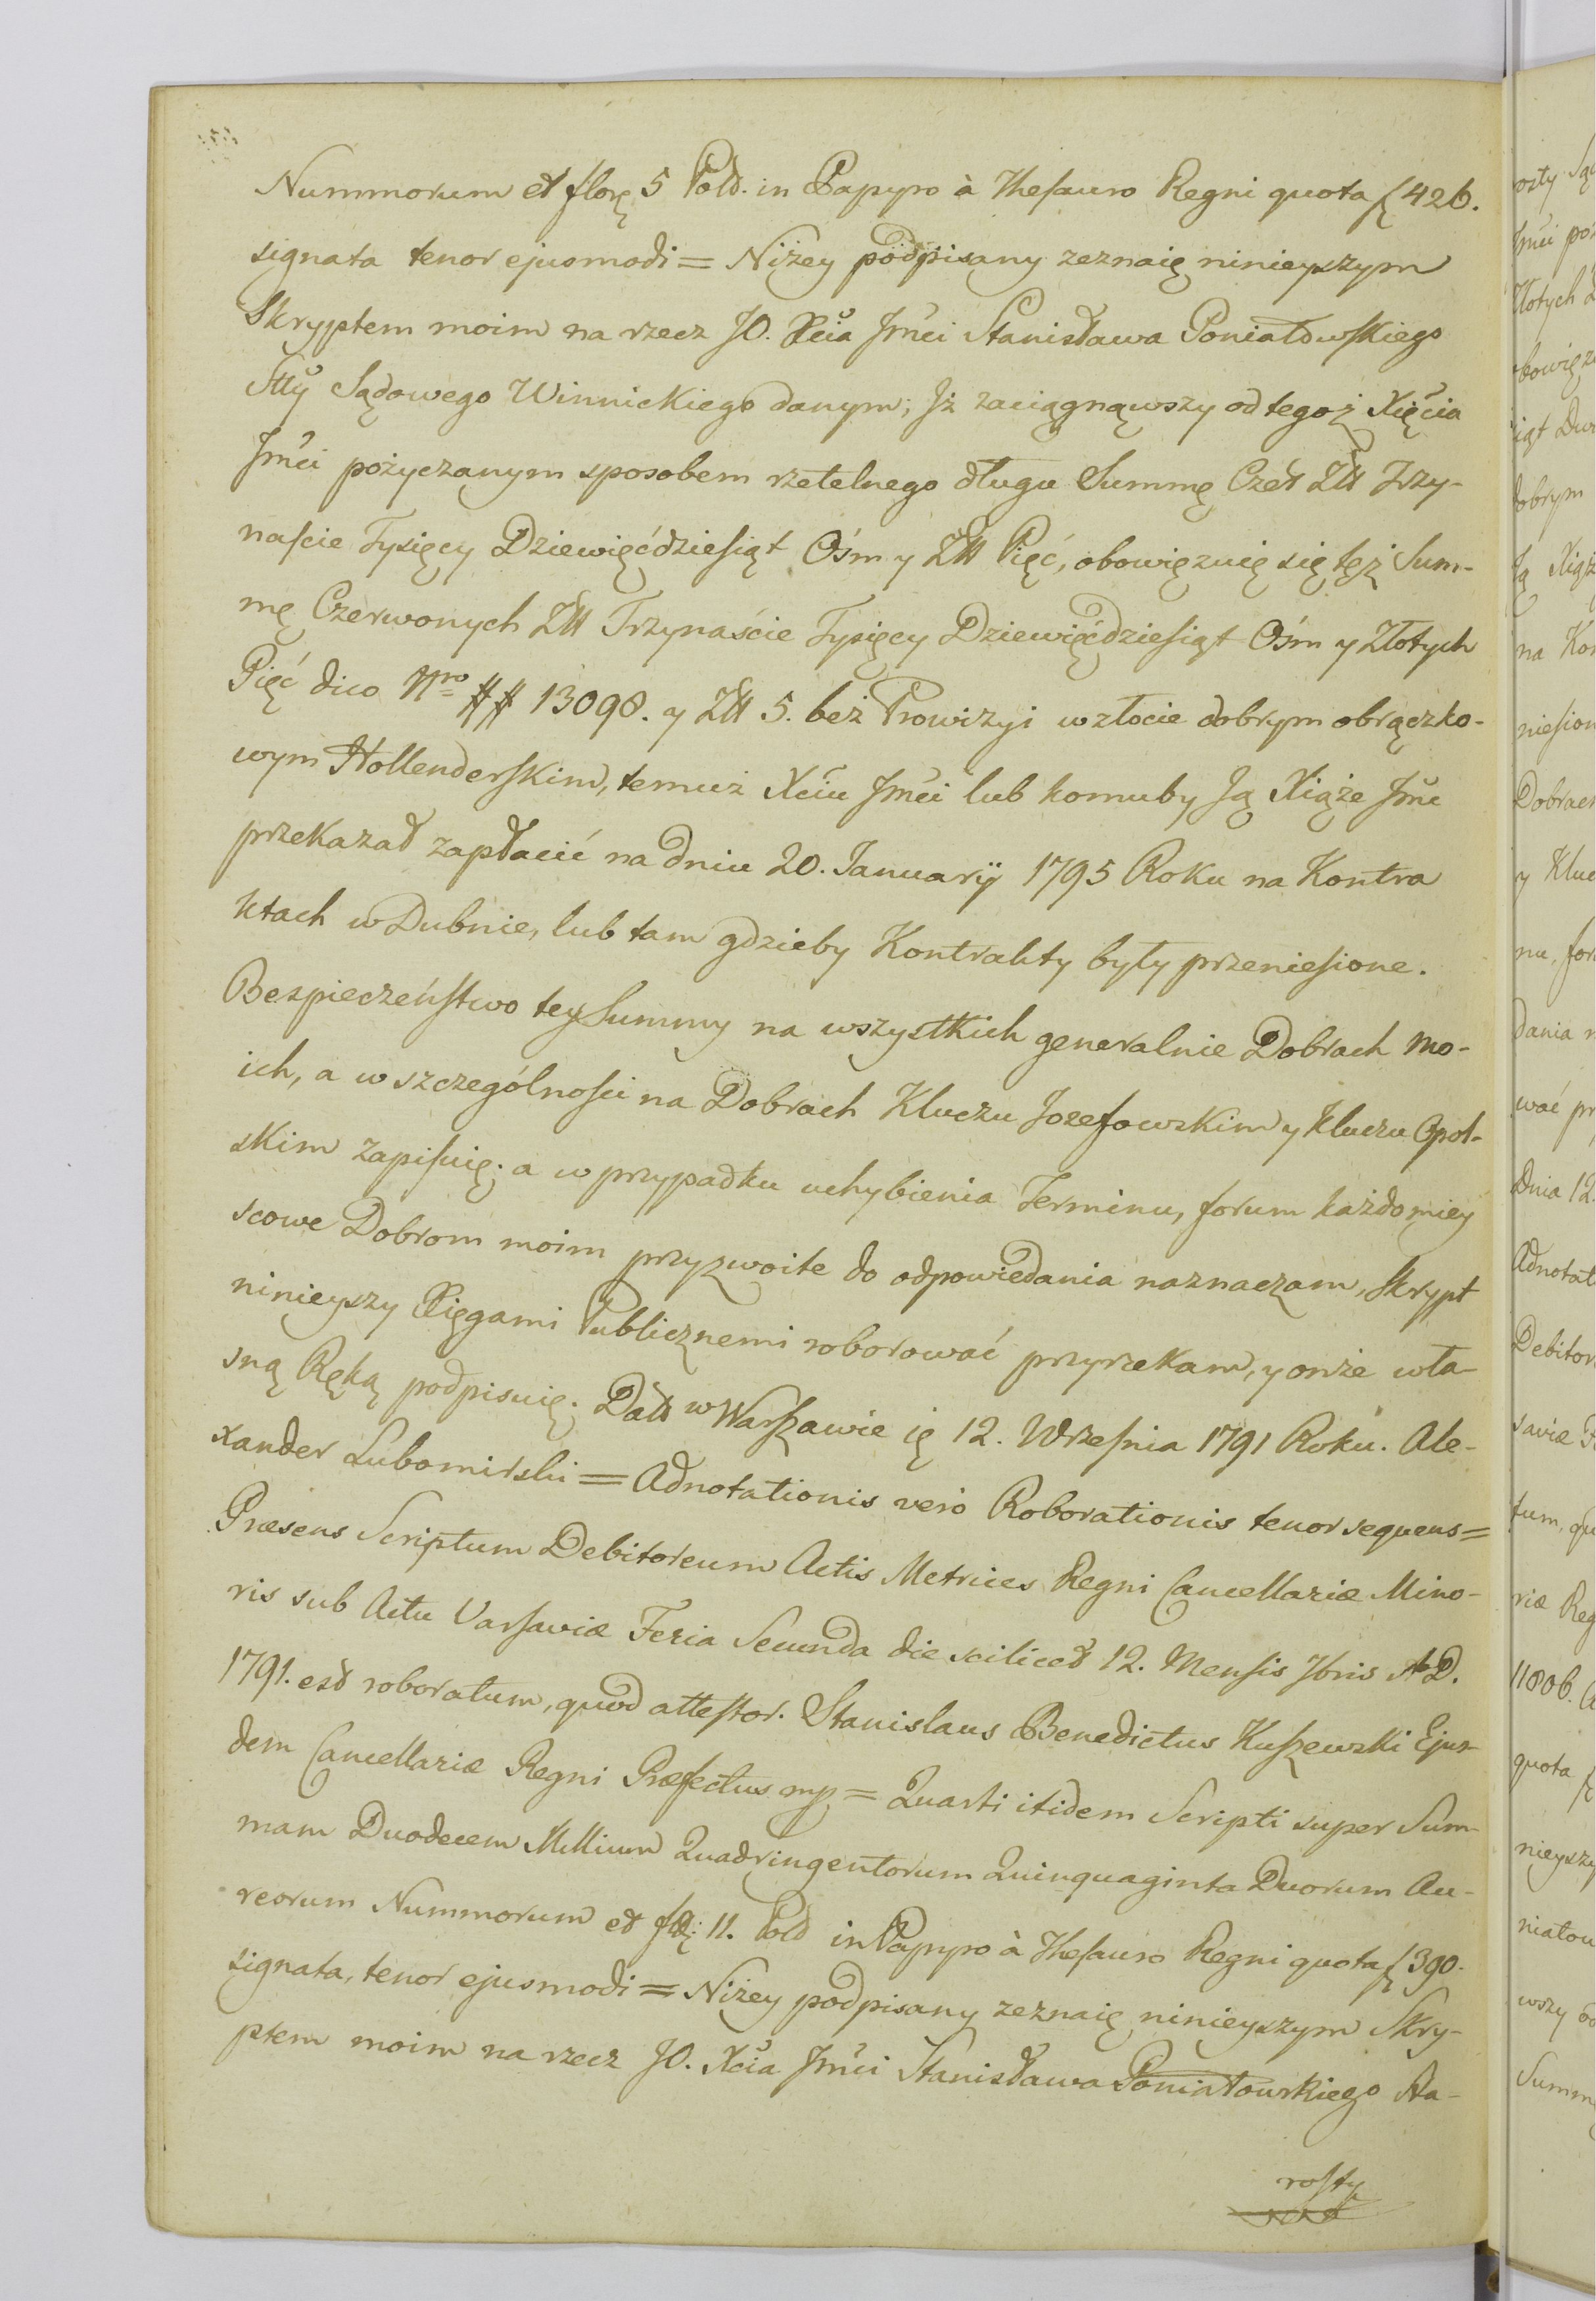 Nummorum et flor 5 Pold. in Papyro à Thesauro Regni quota f 426.
signata tenor ejusmodi = Niżey podpisany zeznaię ninieyszym
Skryptem moim na rzecz JO. Xcia Jmci Stanisława Poniatowskiego
Stty Sądowego Winnickiego danym; Jż zaciągnąwszy od tegoż Xięcia
Jmci pożyczanym sposobem rzetelnego długu Summę Czer Złł Trzy-
naście Tysięcy Dziewięćdziesiąt Ośm y Złł Pięć, obowięzuię się tęż Sum-
mę Czerwonych Złł Trzynaście Tysięcy Dziewięćdziesiąt Ośm y Złotych
Pięć dico Nro ## 13098. y Złł 5. bez Prowizyi w złocie dobrym obrączko-
wym Hollenderskim, temuż Xciu Jmci lub komuby Ją Xiąże Jmc
przekazał zapłacić na dniu 20. Januarij 1795 Roku na Kontra
ktach w Dubnie, lub tam gdzieby Kontrakty były przeniesione.
Bezpieczeństwo tey Summy na wszystkich generalnie Dobrach mo-
ich, a w szczególności na Dobrach Kluczu Jozefowskim y Kluczu Opol-
skim zapisuię; a w przypadku uchybienia Terminu, forum każdomiey
scowe Dobrom moim przyzwoite do odpowiedania naznaczam, Skrypt
ninieyszy Xięgami Publicznemi roborować przyrzekam, y onże wła-
sną Ręką podpisuię. Datt w Warszawie ię 12. Września 1791 Roku. Ale-
xander Lubomirski = Adnotationis verò Roborationis tenor sequens =
Præsens Scriptum Debitoreum Actis Metrices Regni Cancellariæ Mino-
ris sub Actu Varsaviæ Feria Secunda die scilicet 12. Mensis 7bris A D.
1791. est roboratum, quod attestor. Stanislaus Benedictus Kuszewski Ejus-
dem Cancellariæ Regni Præfectus mp = Quarti itidem Scripti super Sum-
mam Duodecem Millium Quadringentorum Quinquaginta Duorum Au-
reorum Nummorum et fl: 11. Pold in Papyro à Thesauro Regni quota f 390.
signata, tenor ejusmodi = Niżey podpisany zeznaię ninieyszym Skry-
ptem moim na rzecz JO. Xcia Jmci Stanisława Poniatowskiego Sta-
rosty